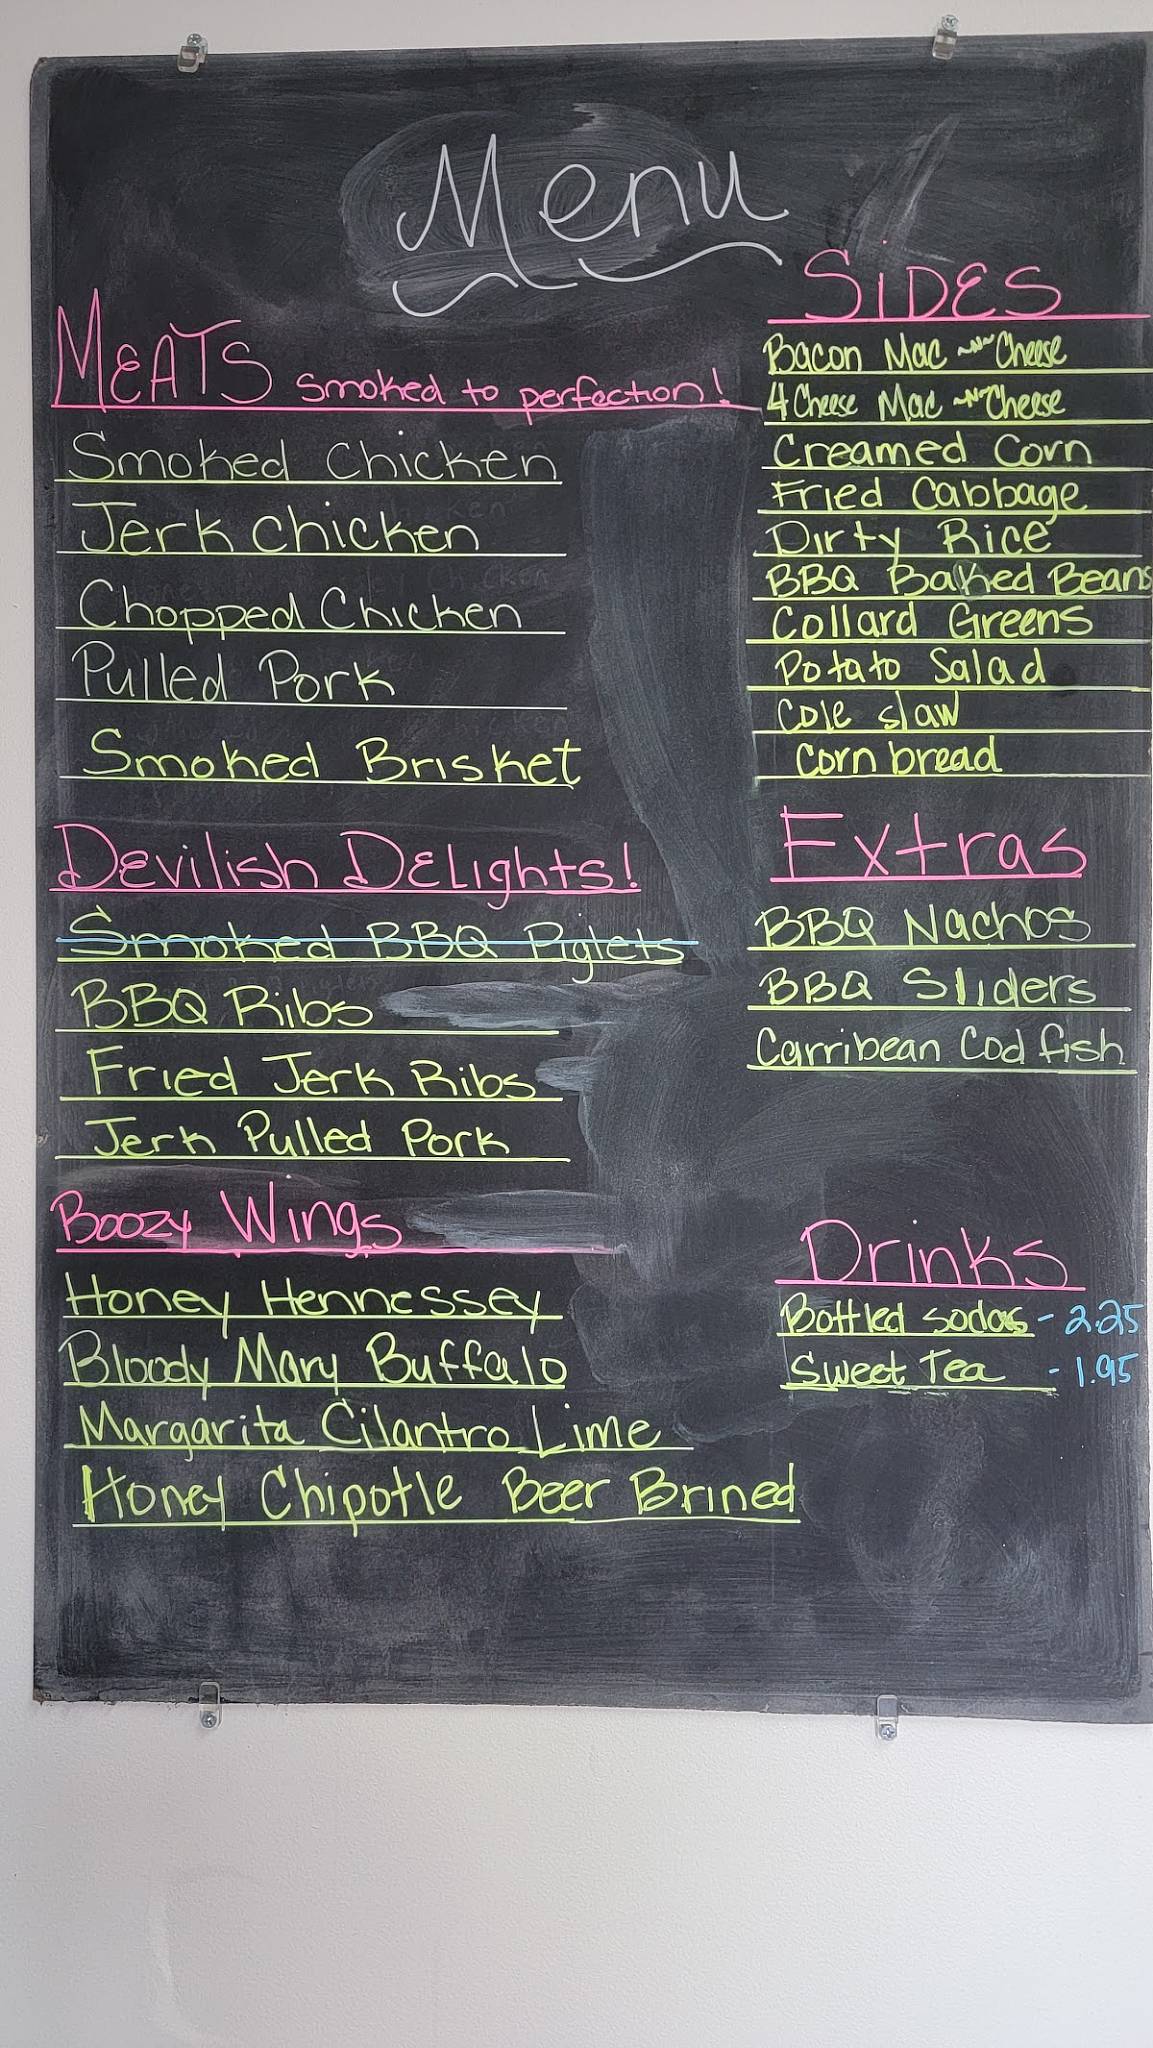 Menu
MEATS smoked to perfection!
Smoked Chicken
Jerk Chicken
Chopped Chicken
Pulled Pork
Smoked Brisket
Devilish Delights!
Smoked BBQ Piglets
BBQ Ribs
Fried Jerk Ribs
Jerk Pulled Pork
Boozy Wings
Honey Hennessey
Bloody Mary Buffalo
Margarita Cilantro Lime
Honey Chipotle Beer Brined
SiDES
Bacon Mac ~N~ Cheese
4 Cheese Mac ~N~ Cheese
Creamed Corn
Fried Cabbage
Dirty Rice
BBQ Baked Beans
Collard Greens
Potato Salad
Cole slaw
Corn bread
Extras
BBQ Nachos
BBQ Sliders
Carribean Cod fish
Drinks
Bottled sodas - 2.25
Sweet Tea - 1.95